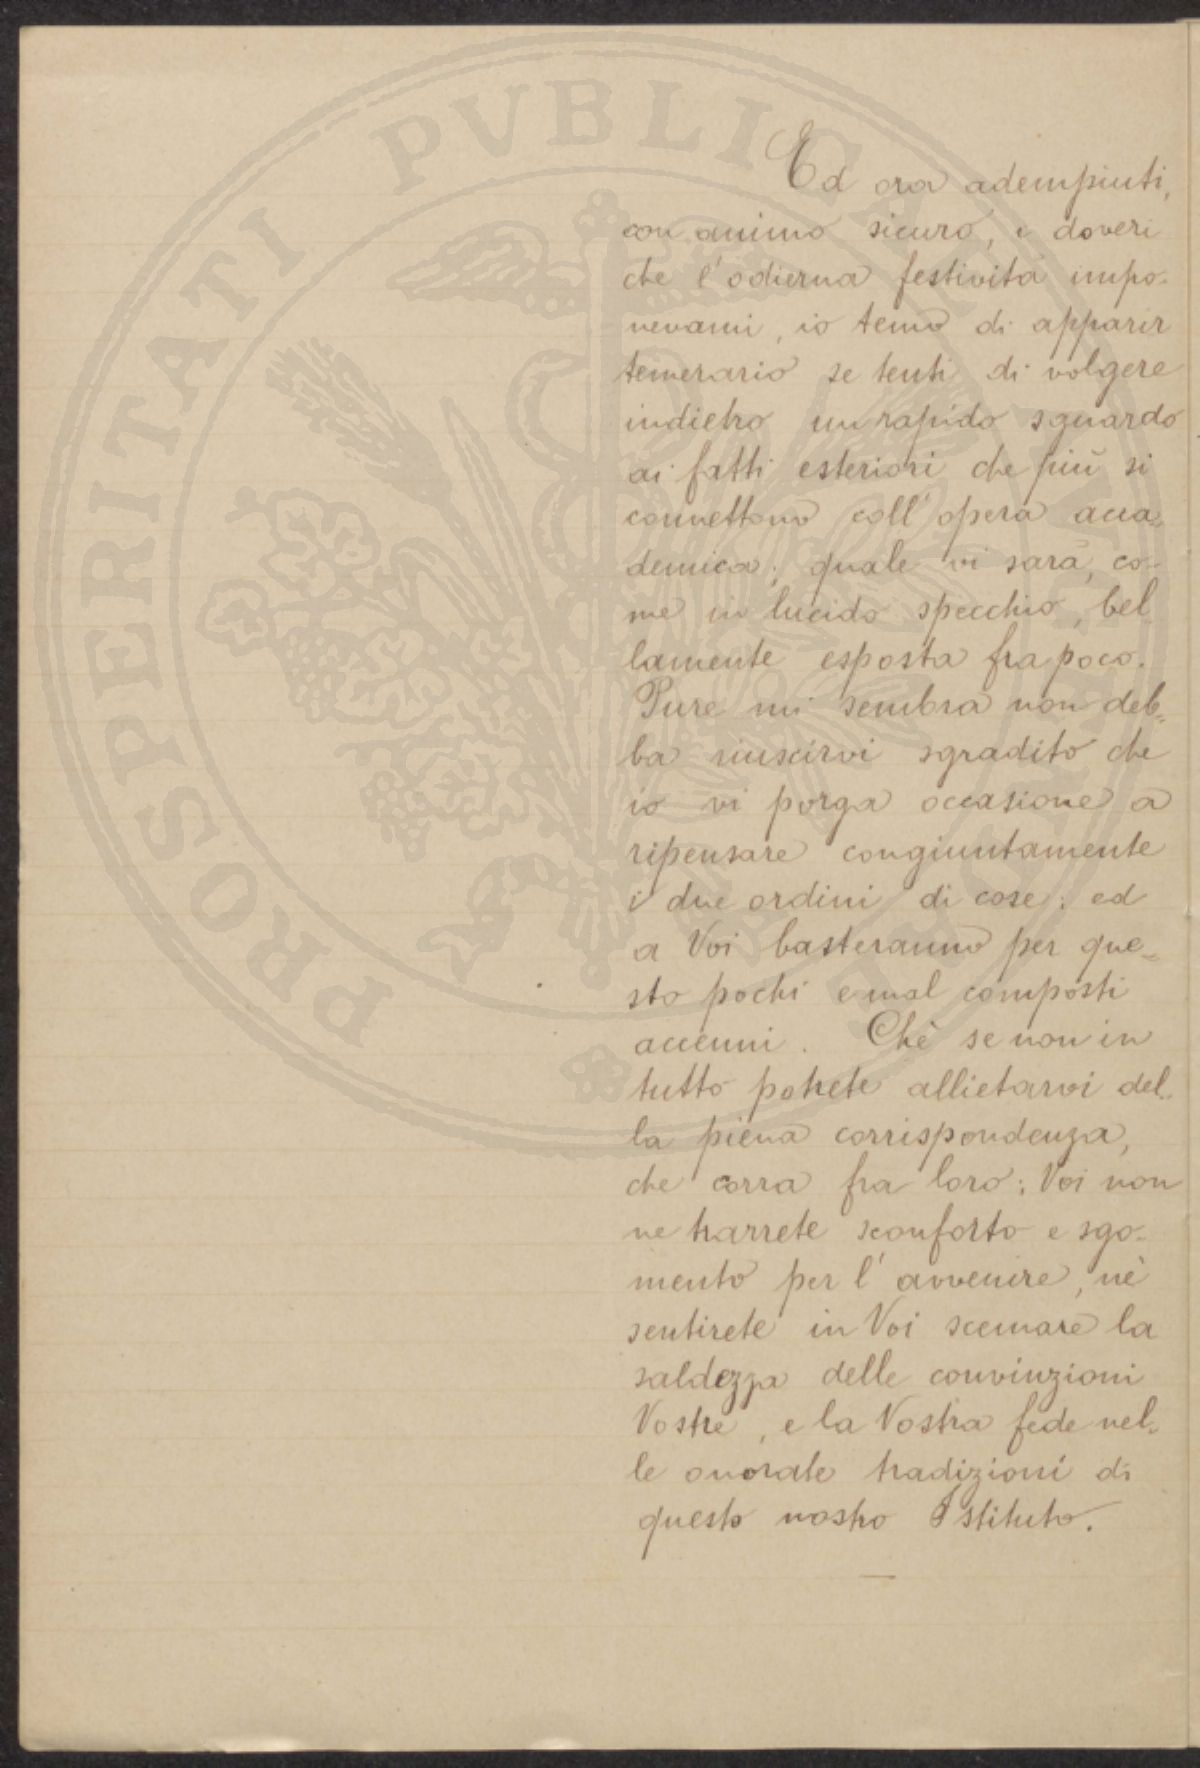 PROSPERITATI PVBLICAE
Ed ora adempiuti,
con animo sicuro, i doveri
che l'odierna festività impo-
nevami, io temo di apparir
temerario se tenti di volgere
indietro un rapido sguardo
ai fatti esteriori che più si
connettono coll'opera acca-
demica; quale vi sarà, co-
me in lucido specchio, bel-
lamente esposta fra poco.
Pure mi sembra non deb-
ba riuscirvi sgradito che
io vi porga occasione a
ripensare congiuntamente
i due ordini di cose; ed
a Voi basteranno per que-
sto pochi e mal composti
accenni. Chè se non in
tutto potrete allietarvi del-
la piena corrispondenza,
che corra fra loro; Voi non
ne trarrete sconforto e sgo-
mento per l'avvenire, nè
sentirete in Voi scemare la
saldezza delle convinzioni
Vostre, e la Vostra fede nel-
le onorate tradizioni di
questo nostro Istituto.